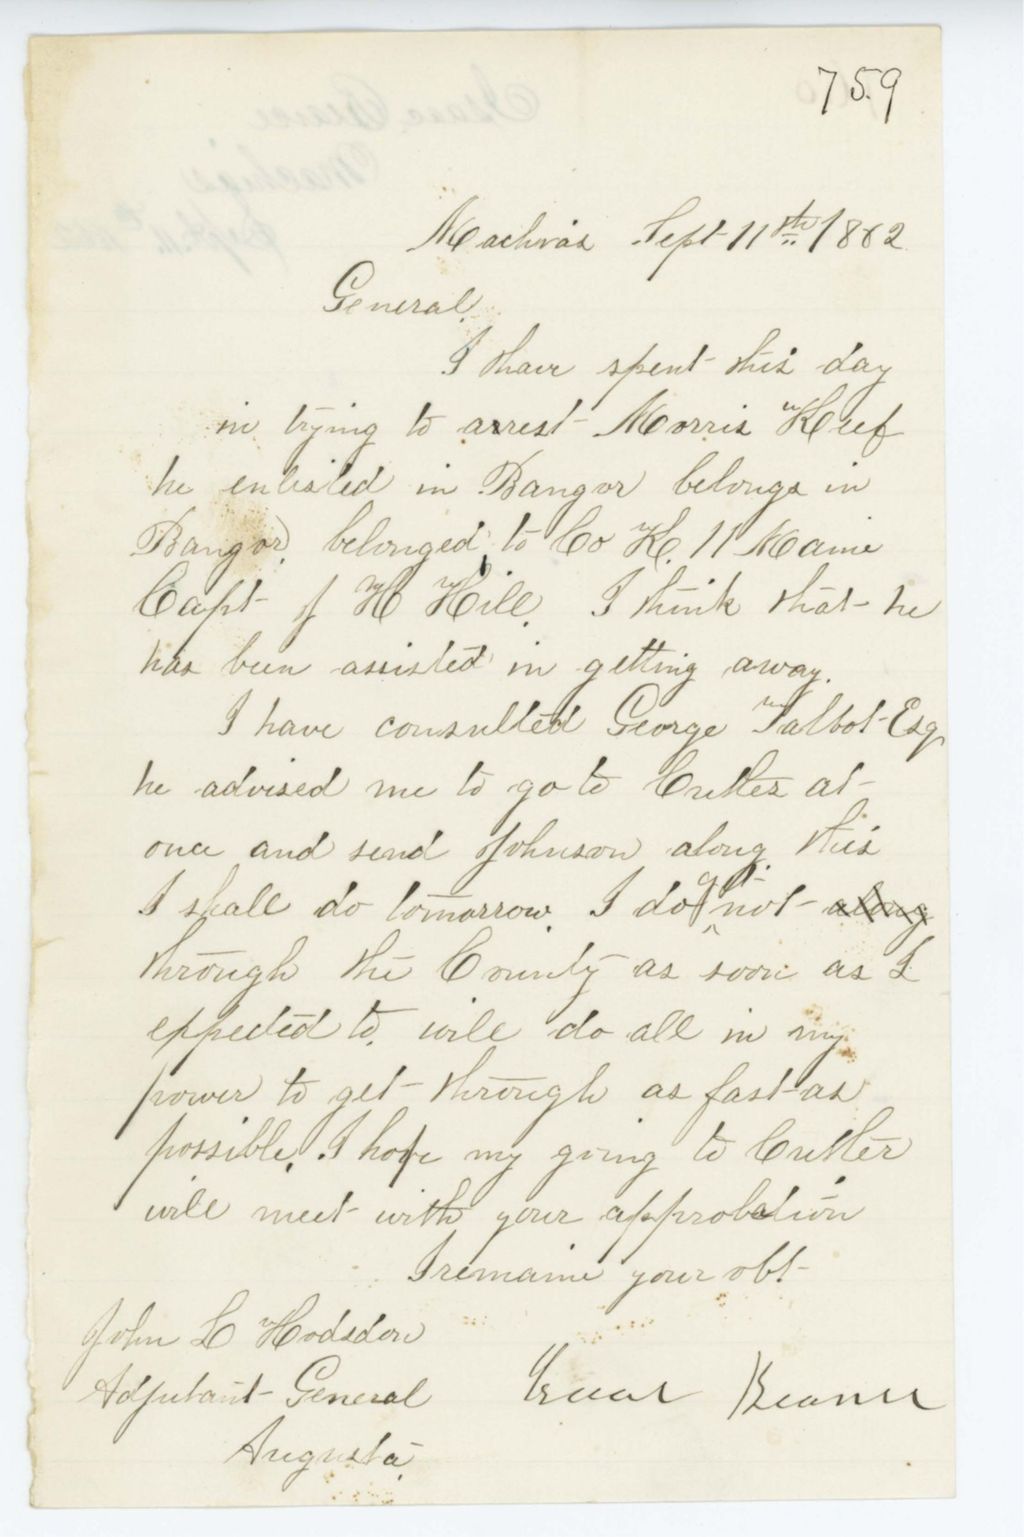 759
Machias Sept 11th 1862
General,
I have spent this day
in trying to arrest Morris Keef
he enlisted in Bangor belongs in
Bangor, belonged to Co K. 11 Maine
Capt J H Hill. I think that he
has been assisted in getting away.
I have consulted George Talbot Esq
he advised me to go to Cutler at
once and send Johnson along this
I shall do tomorrow. I do not get along
through the County as soon as I
expected to, will do all in my
power to get through as fast as
possible. I hope my going to Cutler
will meet with your approbation
I remaine your obt
John L Hodsdon
Adjutant General
Augusta
Isaac